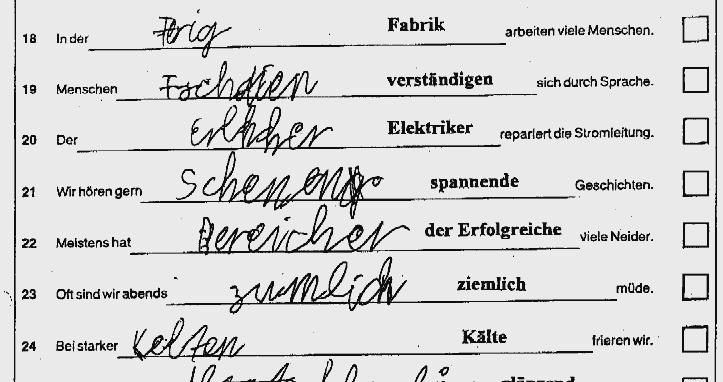 18 In der Frig Fabrik arbeiten viele Menschen.
19 Menschen verständigen sich durch Sprache.
20 Der Elektriker repariert die Stromleitung.
21 Wir hören gern spannende Geschichten.
22 Meistens hat Bereicher der Erfolgreiche viele Neider.
23 Oft sind wir abends zumlich ziemlich müde.
24 Bei starker Kelten Kälte frieren wir.
glänzend